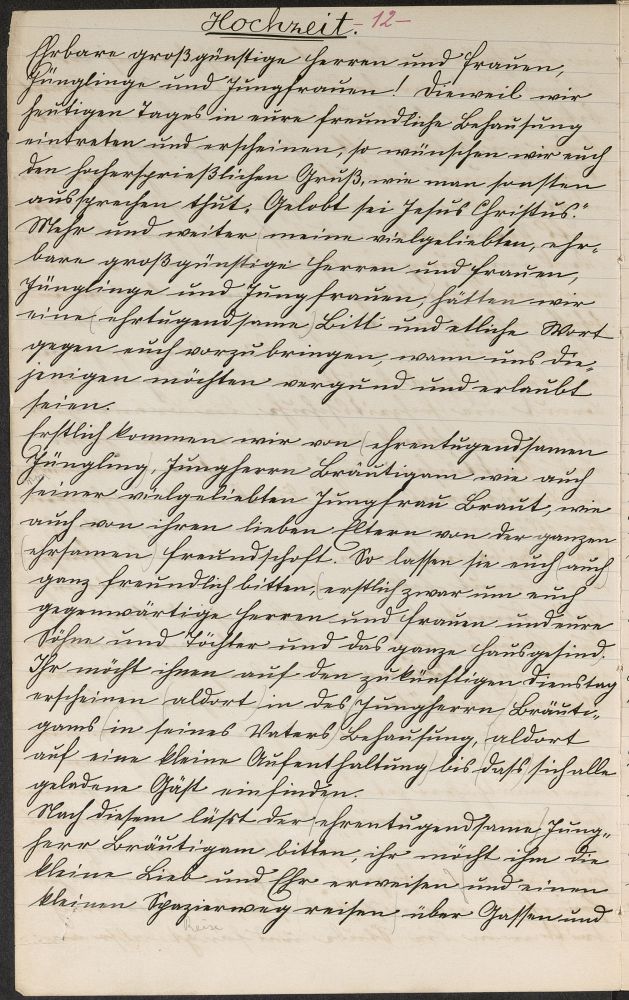 Hochzeit. -12-
Ehrbare großgünstige Herren und Frauen,
Jünglinge und Jungfrauen! Dieweil wir
heutigen Tages in eure freundliche Behausung
eintreten und erscheinen, so wünschen wir euch
den hochersprießlichen Gruß, wie man sonsten
aussprechen thut. „Gelobt sei Jesus Christus."
Mehr und weiter meine vielgeliebten, ehr-
bare großgünstige Herren und Frauen,
Jünglinge und Jungfrauen, hätten wir
eine (ehrtugendsame) Bitt und etliche Wort
gegen euch vorzubringen, wann uns die-
jenigen möchten vergund und erlaubt
seien.
Erstlich kommen wir von (ehrentugendsamen
Jüngling), Jungherrn Bräutigam wie auch
seiner vielgeliebten Jungfrau Braut, wie
auch von ihren lieben Eltern von der ganzen
(ehrsamen) Freundschaft. So lassen sie euch (auch)
ganz freundlich bitten, (erstlich zwar um euch
gegenwärtige Herren und Frauen und eure
Söhne und Töchter und das ganze Hausgesind.
Ihr möcht ihnen auf den zukünftigen Dienstag
erscheinen (aldort) in des Jungherrn (Bräuti-
gams (in seines Vaters) Behausung, (aldort
auf eine kleine Aufenthaltung) bis daß sich alle
geladene Gäst einfinden.
Nach diesem läßt der (ehrentugendsame) Jung-
herr Bräutigam bitten, ihr möcht ihm die
kleine Lieb und Ehr erweisen) und einen
kleinen Spazierweg reisen) über Gassen und
Reise